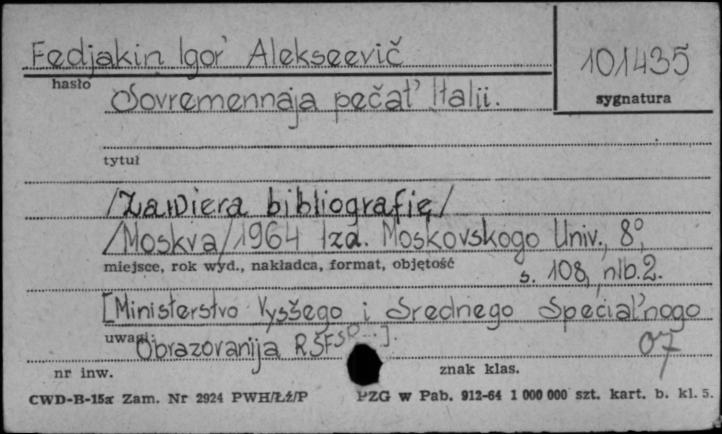 Fedjakin Igor' Alekseevič
101435
hasło
sygnatura
Sovremennaja pečat' Italii.
tytuł
/Zawiera bibliografię/
/Moskva/ 1964 Izd. Moskovskogo Univ., 8°,
miejsce, rok wyd., nakładca, format, objętość
s. 108, nlb. 2.
[Ministerstvo Vysšego i Srednego Special'nogo
uwagi:
Obrazovanija RSFS ...].
07
nr inw.
znak klas.
CWD-B-15a Zam. Nr 2924 PWH/Łź/P
PZG w Pab. 912-64 1 000 000 szt. kart. b. kl. 5.